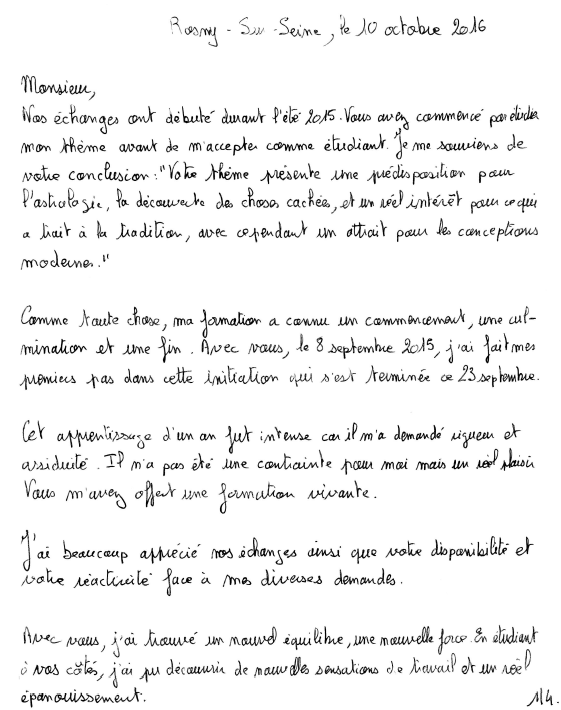 Rosny - Sur - Seine, le 10 octobre 2016
Monsieur,
Nos échanges ont débuté durant l'été 2015. Vous avez commencé par étudier
mon thème avant de m'accepter comme étudiant. Je me souviens de
votre conclusion : "Votre thème présente une prédisposition pour
l'astrologie, la découverte des choses cachées, et un réel intérêt pour ce qui
a trait à la tradition, avec cependant un attrait pour les conceptions
modernes."
Comme toute chose, ma formation a connu un commencement, une cul-
mination et une fin. Avec vous, le 8 septembre 2015, j'ai fait mes
premiers pas dans cette initiation qui s'est terminée ce 23 septembre.
Cet apprentissage d'un an fut intense car il m'a demandé rigueur et
assiduité. Il n'a pas été une contrainte pour moi mais un réel plaisir
Vous m'avez offert une formation vivante.
J'ai beaucoup apprécié nos échanges ainsi que votre disponibilité et
votre réactivité face à mes diverses demandes.
Avec vous, j'ai trouvé un nouvel équilibre, une nouvelle force. En étudiant
à vos côtés, j'ai pu découvrir de nouvelles sensations de travail et un réel
épanouissement.
1/4.